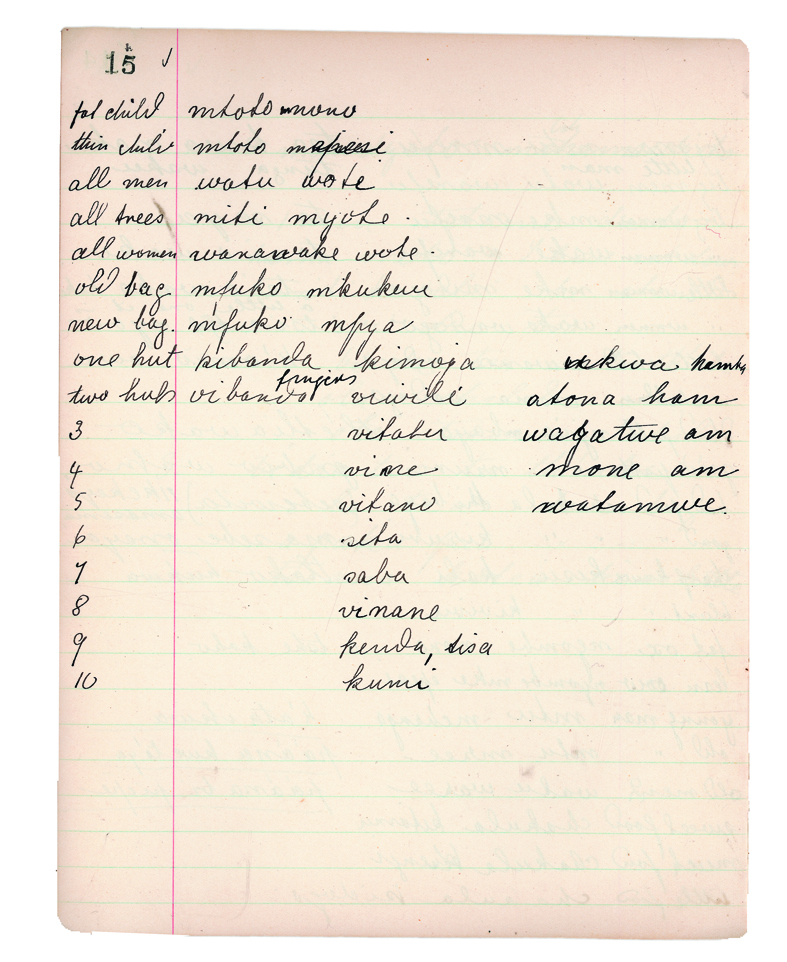 15
fat child mtoto mono
thin child mtoto
all men watu wote
all trees miti myote.
all women wanawake wote.
old bag mfuko mkukuu
new bag. mfuko mpya
one hut kibanda kimoja
fingers
two huts vibanda viwili atona ham
3 vitatu wagatwe am
4 vine mone am
5 vitano watamwe.
6 sita
7 saba
8 vinane
9 kenda, tisa
10 kumi